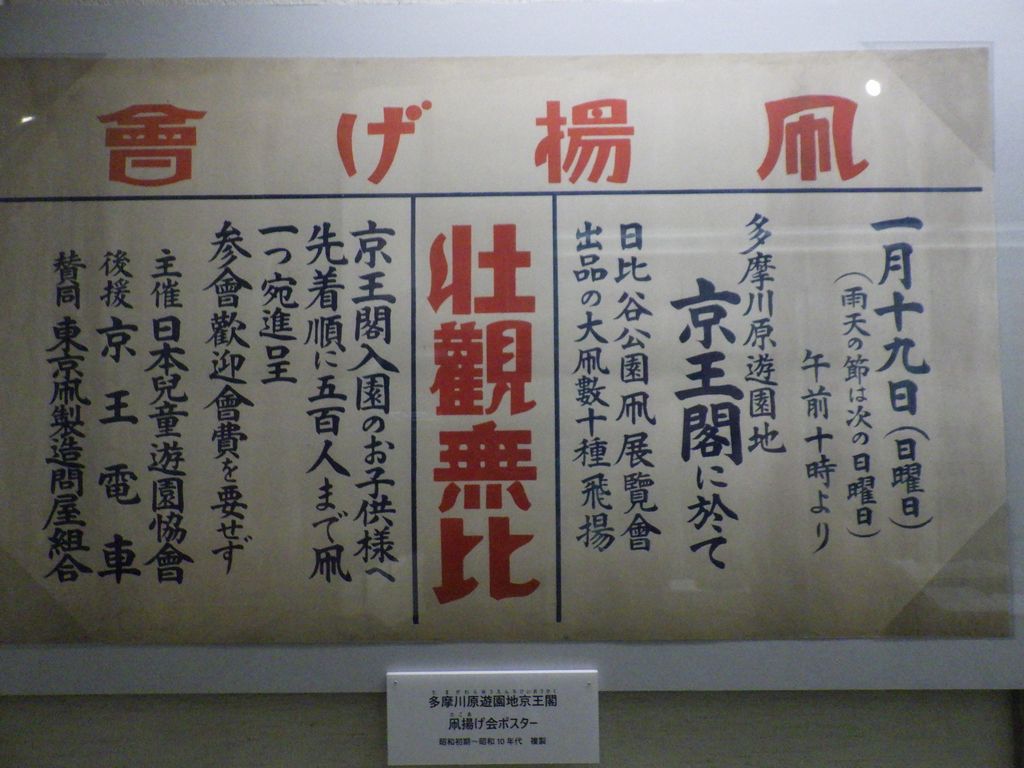 凧揚げ會
一月十九日(日曜日)
(雨天の節は次の日曜日)
午前十時より
多摩川原遊園地
京王閣に於て
日比谷公園凧展覽會
出品の大凧數十種飛揚
壯觀無比
京王閣入園のお子供様へ
先着順に五百人まで凧
一つ宛進呈
参會歡迎會費を要せず
主催 日本兒童遊園協會
後援 京王電車
賛同 東京凧製造問屋組合
多摩川原遊園地京王閣
凧揚げ会ポスター
昭和初期~昭和10年代 複製